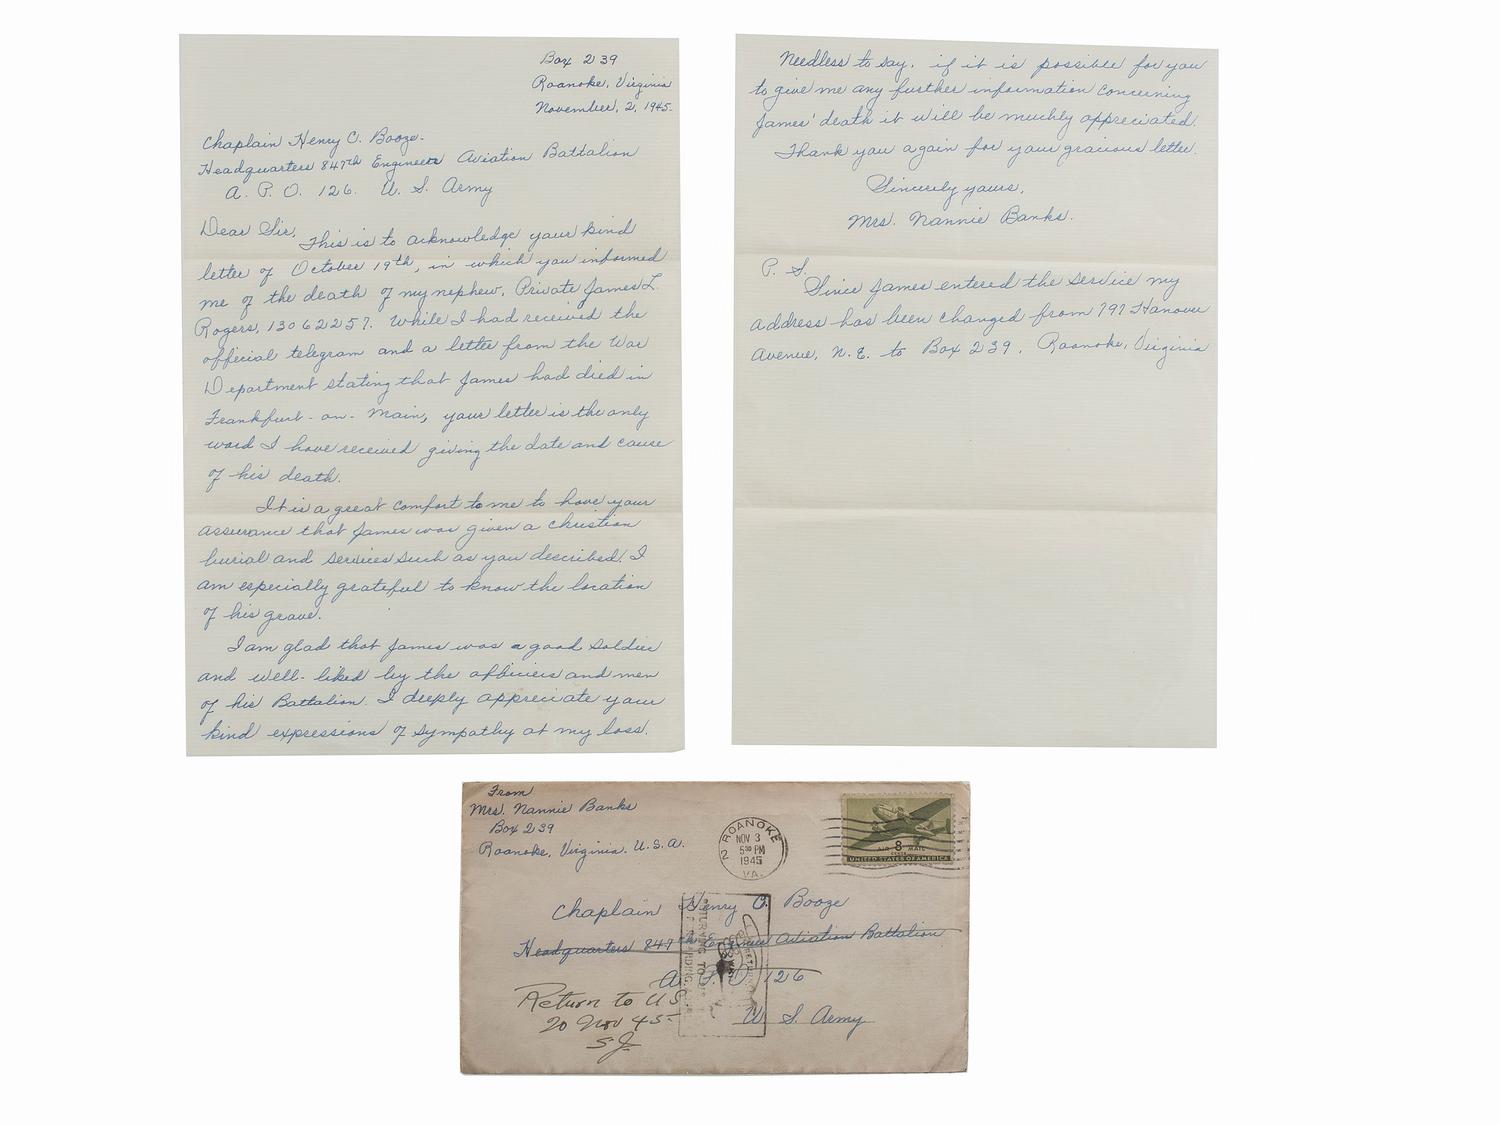 Box 239
Roanoke, Virginia
November, 2, 1945.
Chaplain Henry C. Booze.
Headquarters 847th Engineers Aviation Battalion
A. P. O. 126. U. S. Army
Dear Sir,
This is to acknowledge your kind
letter of October 19th, in which you informed
me of the death of my nephew, Private James L.
Rogers, 13062257. While I had received the
official telegram and a letter from the War
Department stating that James had died in
Frankfurt-on-Main, your letter is the only
word I have received giving the date and cause
of his death.
It is a great comfort to me to have your
assurance that James was given a christian
burial and services such as you described. I
am especially grateful to know the location
of his grave.
I am glad that James was a good soldier
and well-liked by the officers and men
of his Battalion. I deeply appreciate your
kind expressions of sympathy at my loss.
Needless to say, if it is possible for you
to give me any further information concerning
James' death it will be muchly appreciated.
Thank you again for your gracious letter.
Sincerely yours,
Mrs. Nannie Banks.
P. S.
Since James entered the service my
address has been changed from 797 Hanover
Avenue, N.E. to Box 239, Roanoke, Virginia
From
Mrs. Nannie Banks
Box 239
Roanoke, Virginia. U.S.A.
ROANOKE 2
NOV 3
5 30 PM
1945
VA.
AIR 8 MAIL
CENTS
UNITED STATES OF AMERICA
Chaplain Henry C. Booze
Headquarters 847th Engineers Aviation Battalion
A. P. O. 126
U. S. Army
Return to US
20 Nov 45
SJ